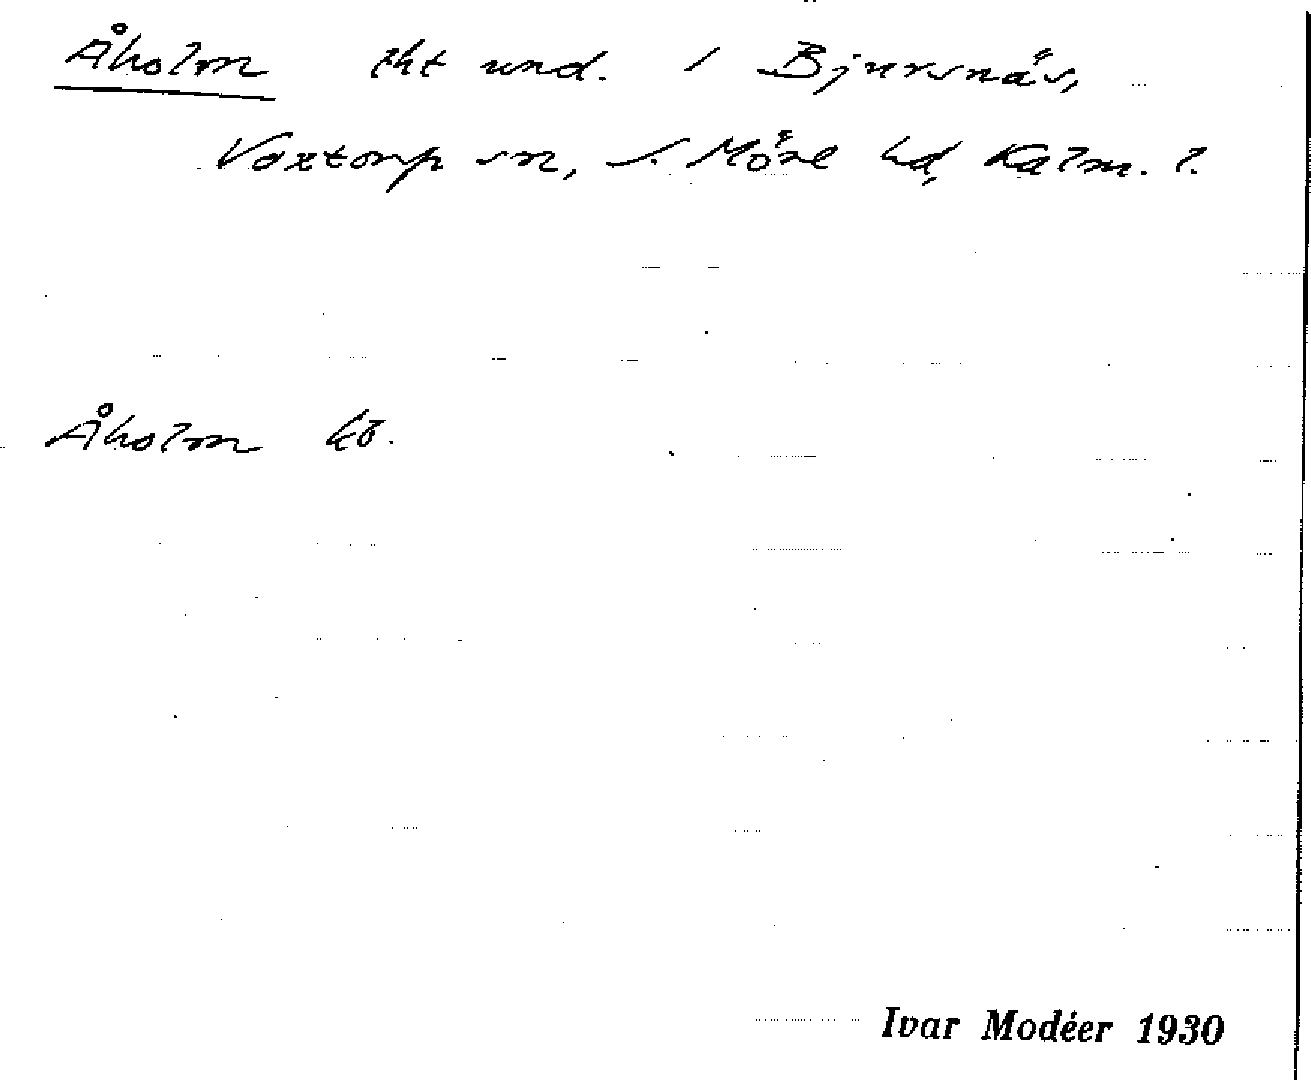 Åholm tht und. 1 Bjursnäs,
Voxtorp sn, S. Möre hd, Kalm. l.
Åholm kb.
Ivar Modéer 1930